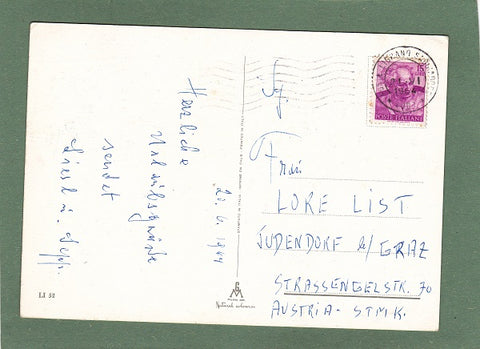 Herzliche
Urlaubsgrüße
sendet
Liesl u. Sepp.
20. 6. 1964
Frau
LORE LIST
JUDENDORF b/ GRAZ
STRASSENGELSTR. 70
AUSTRIA - STMK.
POSTE ITALIANE
15
LI 52